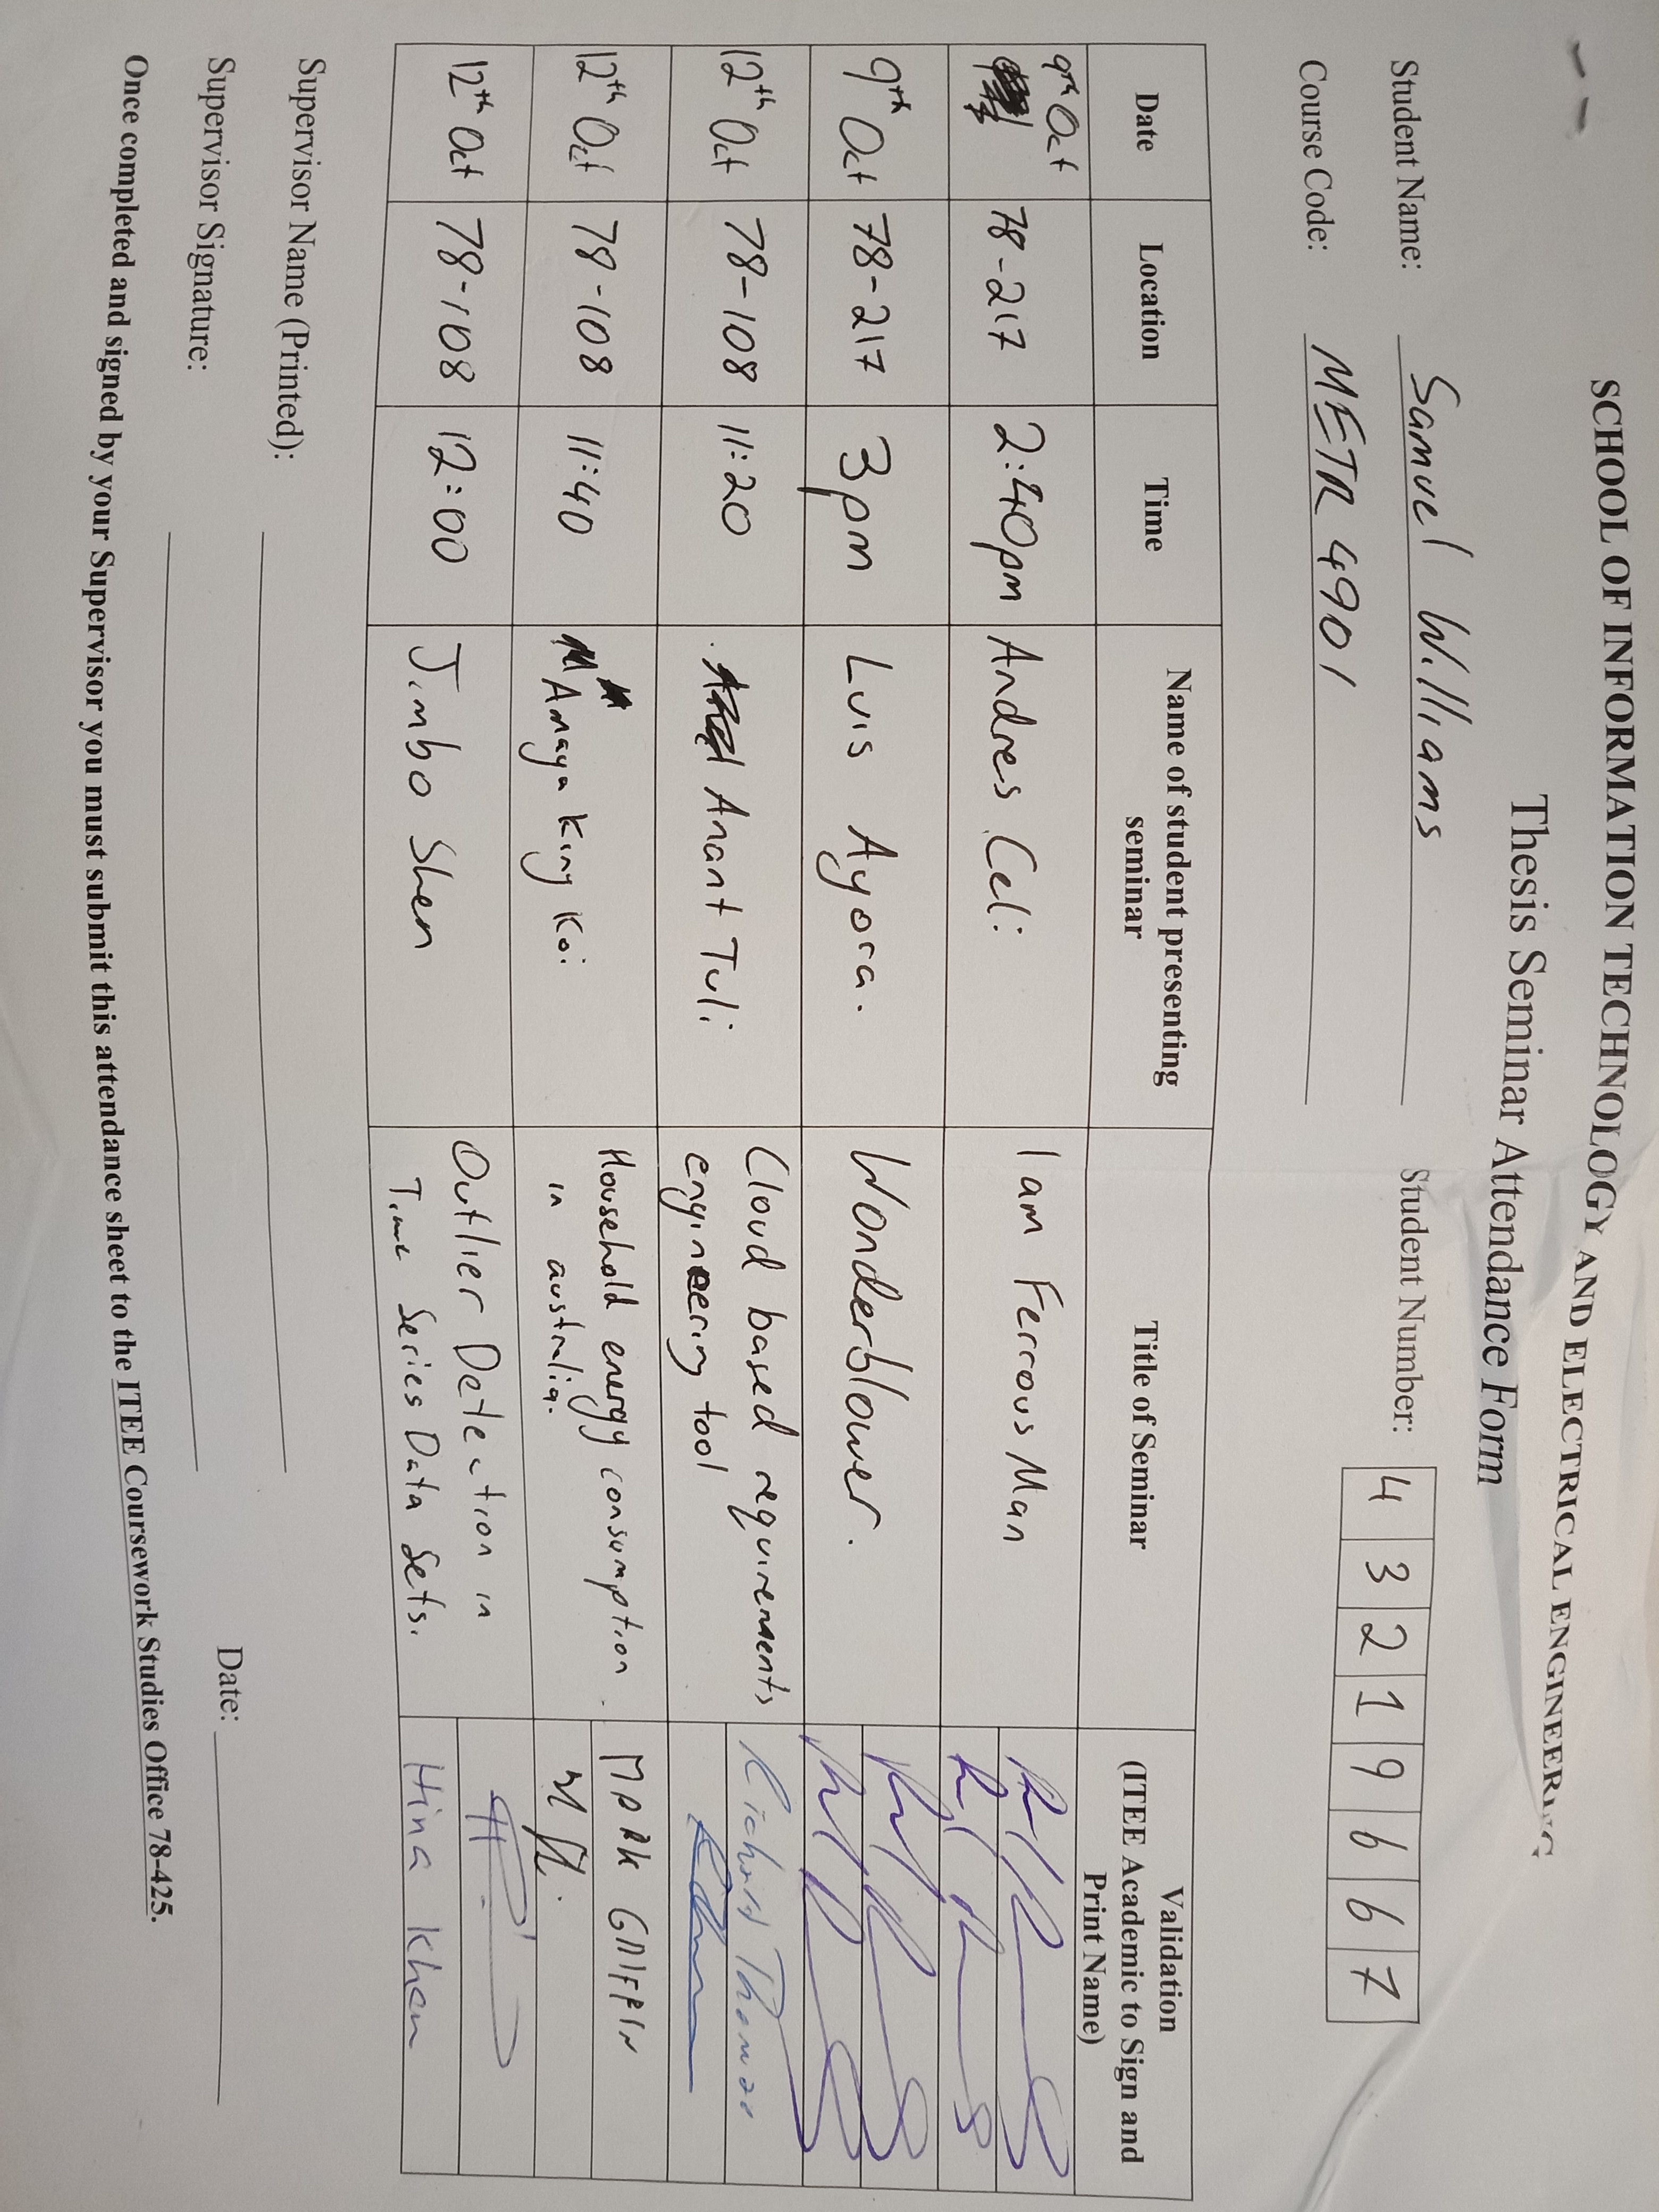 SCHOOL OF INFORMATION TECHNOLOGY AND ELECTRICAL ENGINEERING
Thesis Seminar Attendance Form
Student Name: Samuel Williams Student Number: 4 3 2 1 9 6 6 7
Course Code: METR 4901
Date Location Time Name of student presenting seminar Title of Seminar Validation (ITEE Academic to Sign and Print Name)
9th Oct 78-217 2:40pm Andres Celi I am Ferrous Man
9th Oct 78-217 3pm Luis Ayora. Wonderblower.
12th Oct 78-108 11:20 Anant Tuli Cloud based requirements engineering tool Richard Thomas
12th Oct 78-108 11:40 Amaya King Koi Household energy consumption in australia. MARK GRIFFIN
12th Oct 78-108 12:00 Jimbo Shen Outlier Detection in Time Series Data Sets. Hina Khan
Supervisor Name (Printed):
Supervisor Signature: Date:
Once completed and signed by your Supervisor you must submit this attendance sheet to the ITEE Coursework Studies Office 78-425.